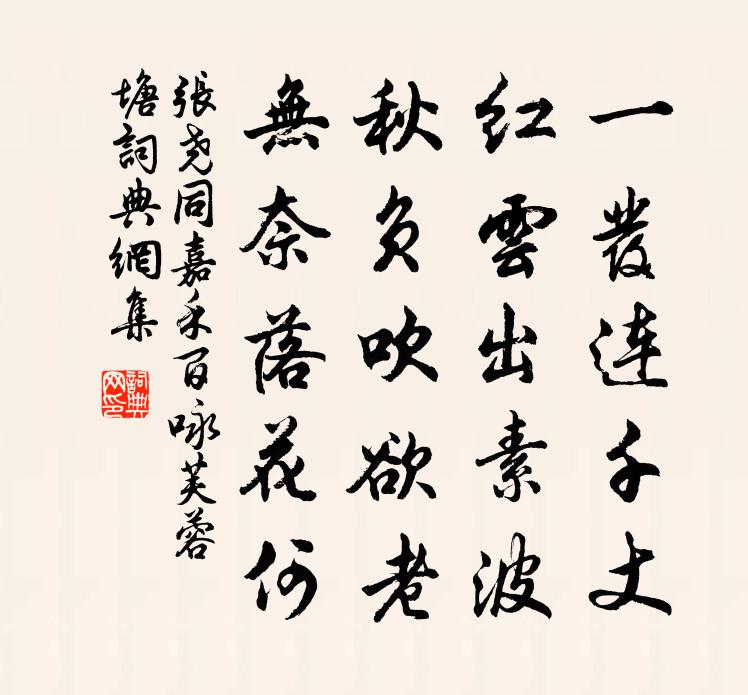 一發連千丈
紅雲出素波
秋風吹欲老
無奈落花何
張尧同嘉禾百咏芙蓉
塘詞典網集
詞典网印